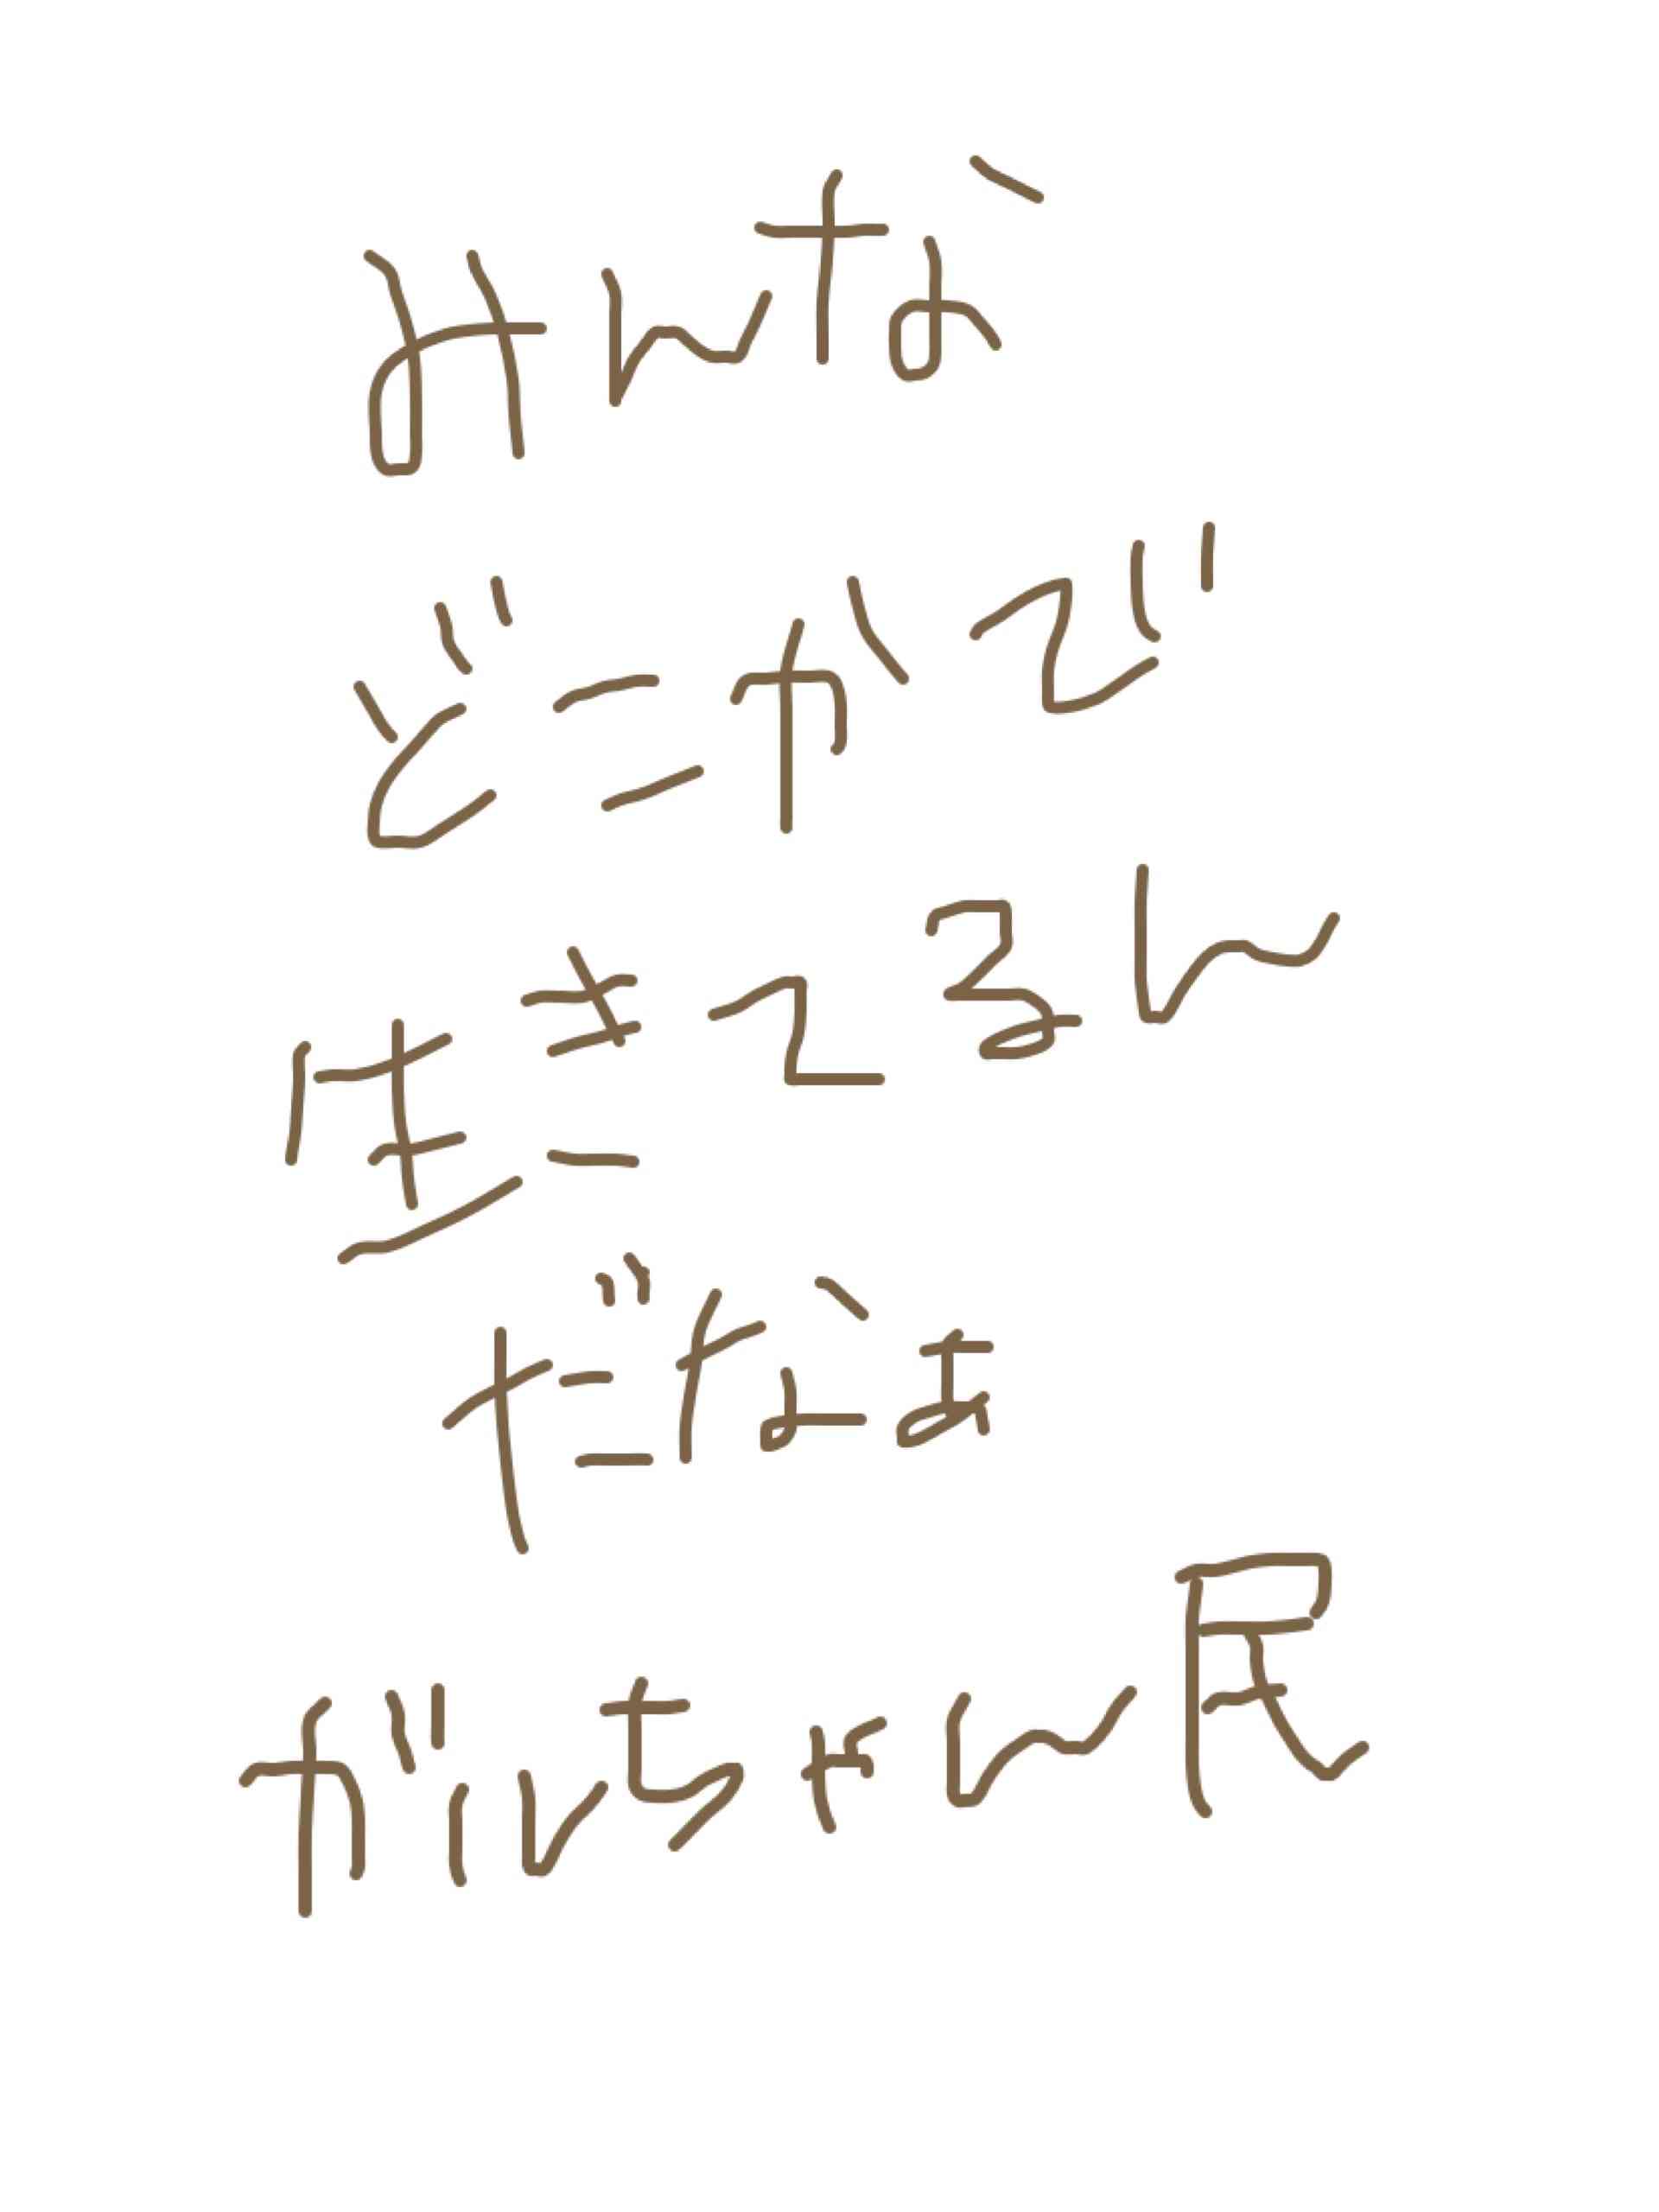 みんな
どこかで
生きてるん
だなぁ
ガルちゃん民